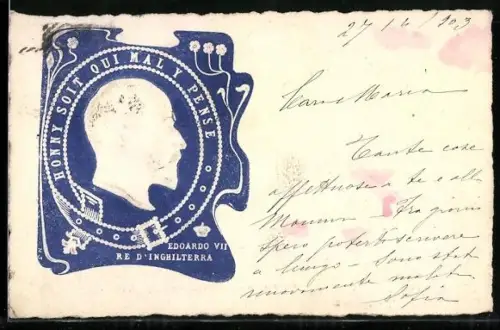 HONNY SOIT QUI MAL Y PENSE
EDOARDO VII
RE D'INGHILTERRA
27/4/903
Cara Maria
Tante cose
affettuose a te e alla
Mamma - Fra giorni
spero poterti scrivere
a lungo - Sono stata
nuovamente malata
Sofia